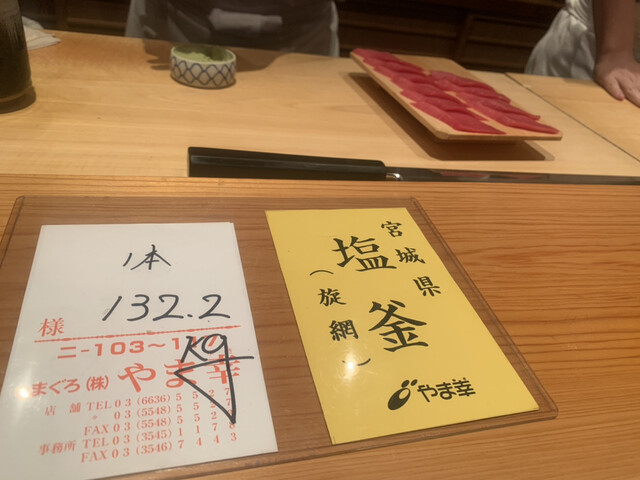 1本
132.2
kg
様
ニ-103〜1
まぐろ(株)やま幸
店舗 TEL 03(6636)5527
〃 03(5548)55
FAX 03(5548)552
事務所 TEL 03(3545)1178
FAX 03(3546)7443
宮城県
塩釜
(旋網)
やま幸